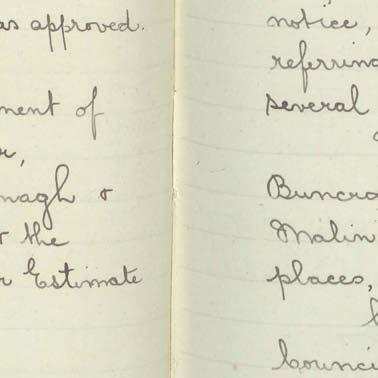 as approved.
ment of
r,
nagh &
r the
r Estimate
notice,
referring
several
Buncra
Malin
places,
Counci